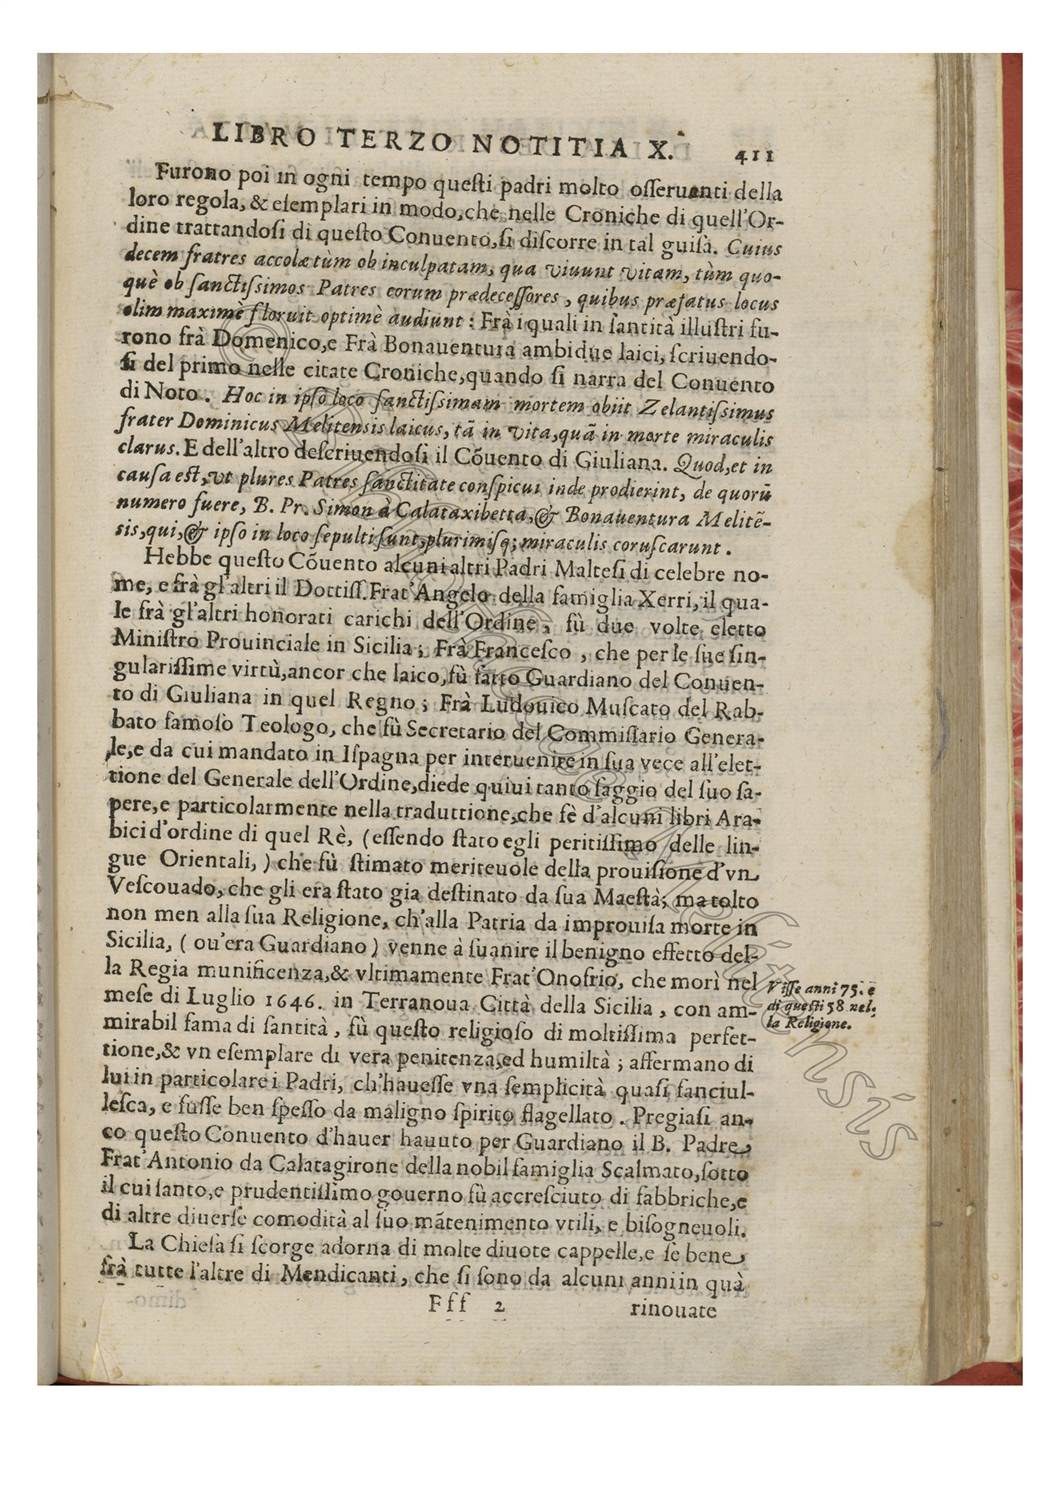 LIBRO TERZO NOTITIA X. 411
Furono poi in ogni tempo queſti padri molto oſſeruanti della
loro regola, & eſemplari in modo, che nelle Croniche di quell'Or-
dine trattandoſi di queſto Conuento, ſi diſcorre in tal guiſa. Cuius
decem fratres accolæ tùm ob inculpatam, qua viuunt vitam, tùm quo-
què ob ſanctiſsimos Patres eorum prædeceſſores, quibus præfatus locus
olim maximè floruit optimè audiunt: Frà i quali in ſantità illuſtri fu-
rono frà Domenico, e Frà Bonauentura ambidue laici, ſcriuendo-
ſi del primo nelle citate Croniche, quando ſi narra del Conuento
di Noto. Hoc in ipſo loco ſanctiſsimam mortem obiit Zelantiſsimus
frater Dominicus Melitensis laicus, tã in vita, quã in morte miraculis
clarus. E dell'altro deſcriuendoſi il Cõuento di Giuliana. Quod, et in
cauſa eſt, vt plures Patres ſanctitate conſpicui inde prodierint, de quorũ
numero fuere, B. Pr. Simon à Calataxibetta, & Bonauentura Melitẽ-
sis, qui, & ipſo in loco ſepulti ſunt, plurimiſq; miraculis coruſcarunt.
Hebbe queſto Cõuento alcuni altri Padri Malteſi di celebre no-
me, e frà gl'altri il Dottiſſ. Frat'Angelo della famiglia Xerri, il qua-
le frà gl'altri honorati carichi dell'Ordine, fù due volte eletto
Miniſtro Prouinciale in Sicilia; Frà Franceſco, che per le ſue ſin-
gulariſſime virtù, ancor che laico, fù fatto Guardiano del Conuen-
to di Giuliana in quel Regno; Frà Ludouico Muſcato del Rab-
bato famoſo Teologo, che fù Secretario del Commiſſario Genera-
le, e da cui mandato in Iſpagna per interuenire in ſua vece all'elet-
tione del Generale dell'Ordine, diede quiui tanto ſaggio del ſuo ſa-
pere, e particolarmente nella traduttione, che fè d'alcuni libri Ara-
bici d'ordine di quel Rè, (eſſendo ſtato egli peritiſſimo delle lin-
gue Orientali,) che fù ſtimato meriteuole della prouiſione d'vn
Veſcouado, che gli era ſtato gia deſtinato da ſua Maeſtà; ma tolto
non men alla ſua Religione, ch'alla Patria da improuiſa morte in
Sicilia, (ou'era Guardiano) venne à ſuanire il benigno effetto del-
la Regia munificenza, & vltimamente Frat'Onofrio, che morì nel
meſe di Luglio 1646. in Terranoua Città della Sicilia, con am-
mirabil fama di ſantità, fù queſto religioſo di moltiſſima perfet-
tione, & vn eſemplare di vera penitenza, ed humiltà; affermano di
lui in particolare i Padri, ch'haueſſe vna ſemplicità quaſi fanciul-
leſca, e fuſſe ben ſpeſſo da maligno ſpirito flagellato. Pregiaſi an-
co queſto Conuento d'hauer hauuto per Guardiano il B. Padre
Frat'Antonio da Calatagirone della nobil famiglia Scalmato, ſotto
il cui ſanto, e prudentiſſimo gouerno fù accreſciuto di fabbriche, e
di altre diuerſe comodità al ſuo mãtenimento vtili, e biſogneuoli.
La Chieſa ſi ſcorge adorna di molte diuote cappelle, e ſe bene
frà tutte l'altre di Mendicanti, che ſi ſono da alcuni anni in quà
Fff 2 rinouate
Viſſe anni 75. e
di queſti 58 nel-
la Religione.